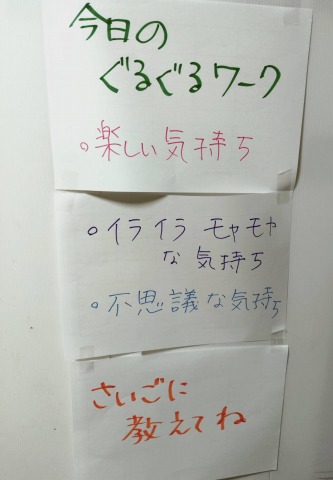 今日の
ぐるぐるワーク
○楽しい気持ち
○イライラ モヤモヤ
な気持ち
○不思議な気持ち
さいごに
教えてね